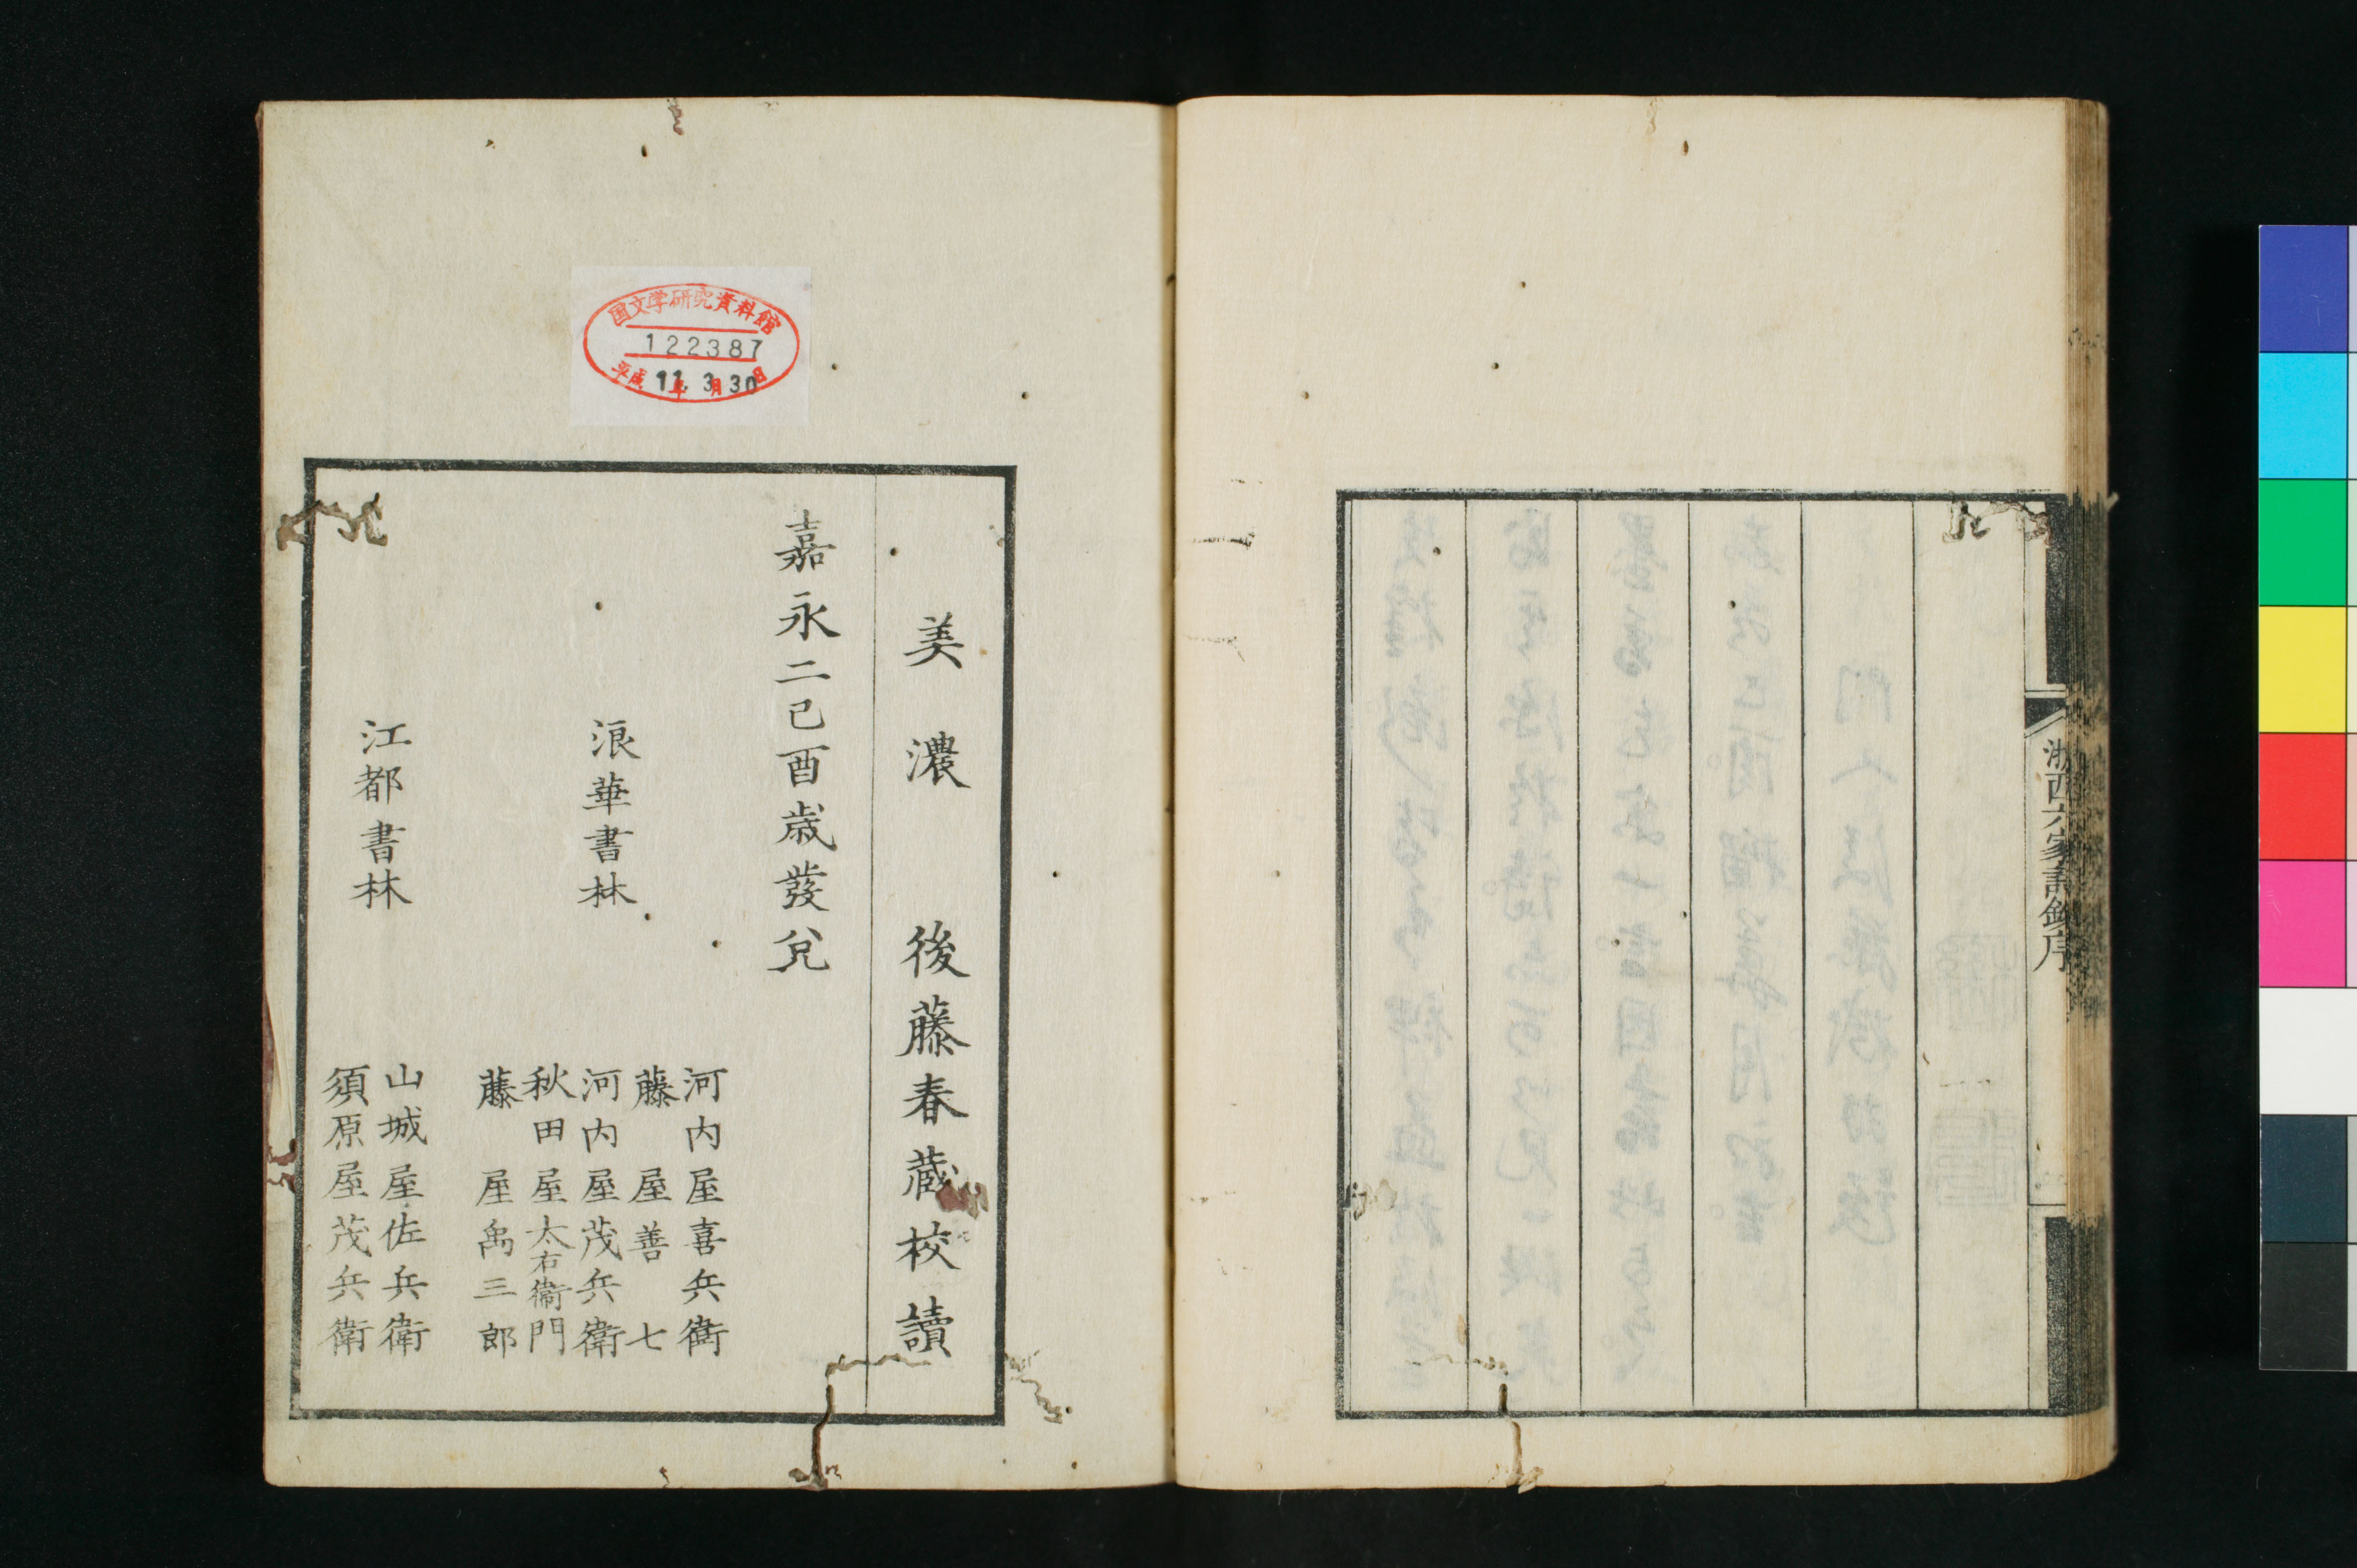 浙西六家詩鈔序
国文学研究資料館
122387
平成11年3月30日
美濃 後藤春蔵校讀
嘉永二己酉歳發兌
浪華書林
河内屋喜兵衛
藤屋善七
河内屋茂兵衛
秋田屋太右衛門
藤屋禹三郎
江都書林
山城屋佐兵衛
須原屋茂兵衛